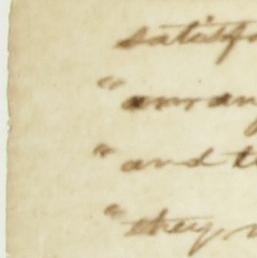 satisf
"arran
"and t
"they